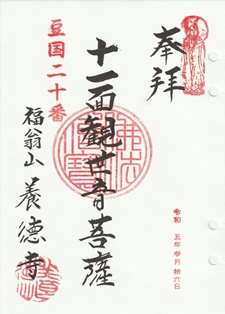 奉拝
十一面観世音菩薩
豆国二十番
福翁山 養徳寺
令和 五年 弐月 拾六日